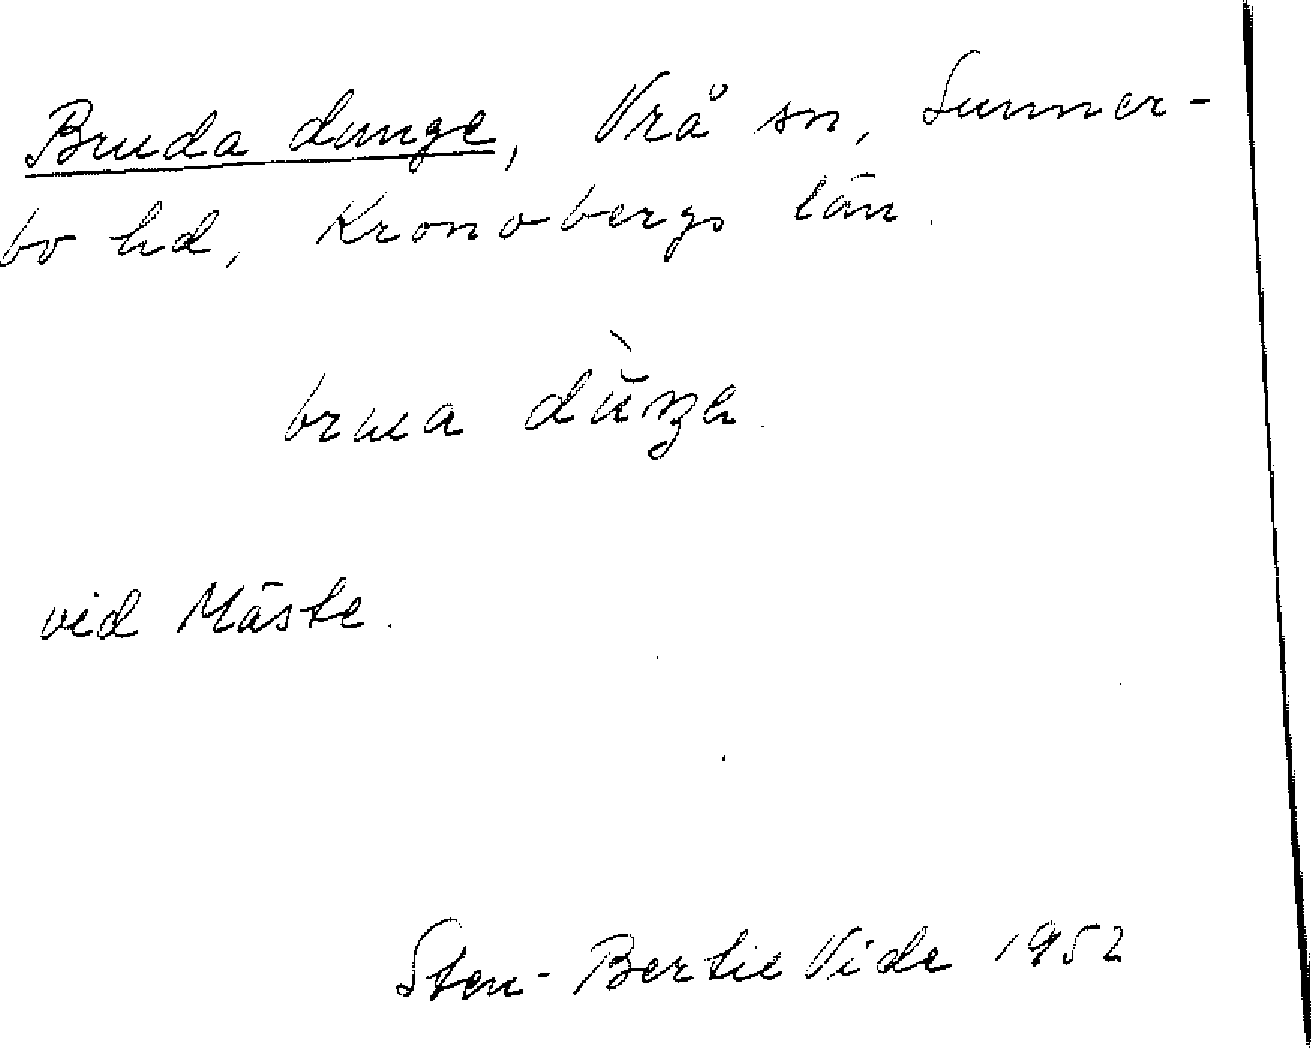 Bruda dunge, Vrå sn, Sunner-
bo hd, Kronobergs län.
vid Mäste.
Sten-Bertil Vide 1952